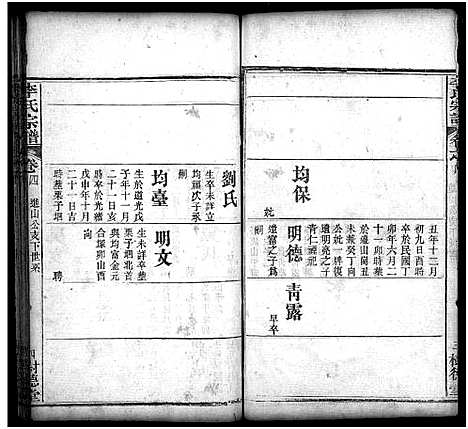 丑年十二月
初九日酉時
卒於民國二
卯年六月二
十卯時葬
於道山岡丑
未兼癸丁向
公就一粹復
遺明亮之子
青仁禪祀
遺富之子爲
嗣
均保
就
明德
青露
早卒
李氏宗譜
卷四
進山公支下世系
劉氏
生卒未詳立
均福次子承
嗣
均臺
明文
生於道光戊
子年十一月
二十一日吉
時卒於光緒
戊申年十月
二十一日吉
時葬栗子埡
生未詳卒葬
栗子埡北首
與均富金元
合塚卯山酉
向
聘